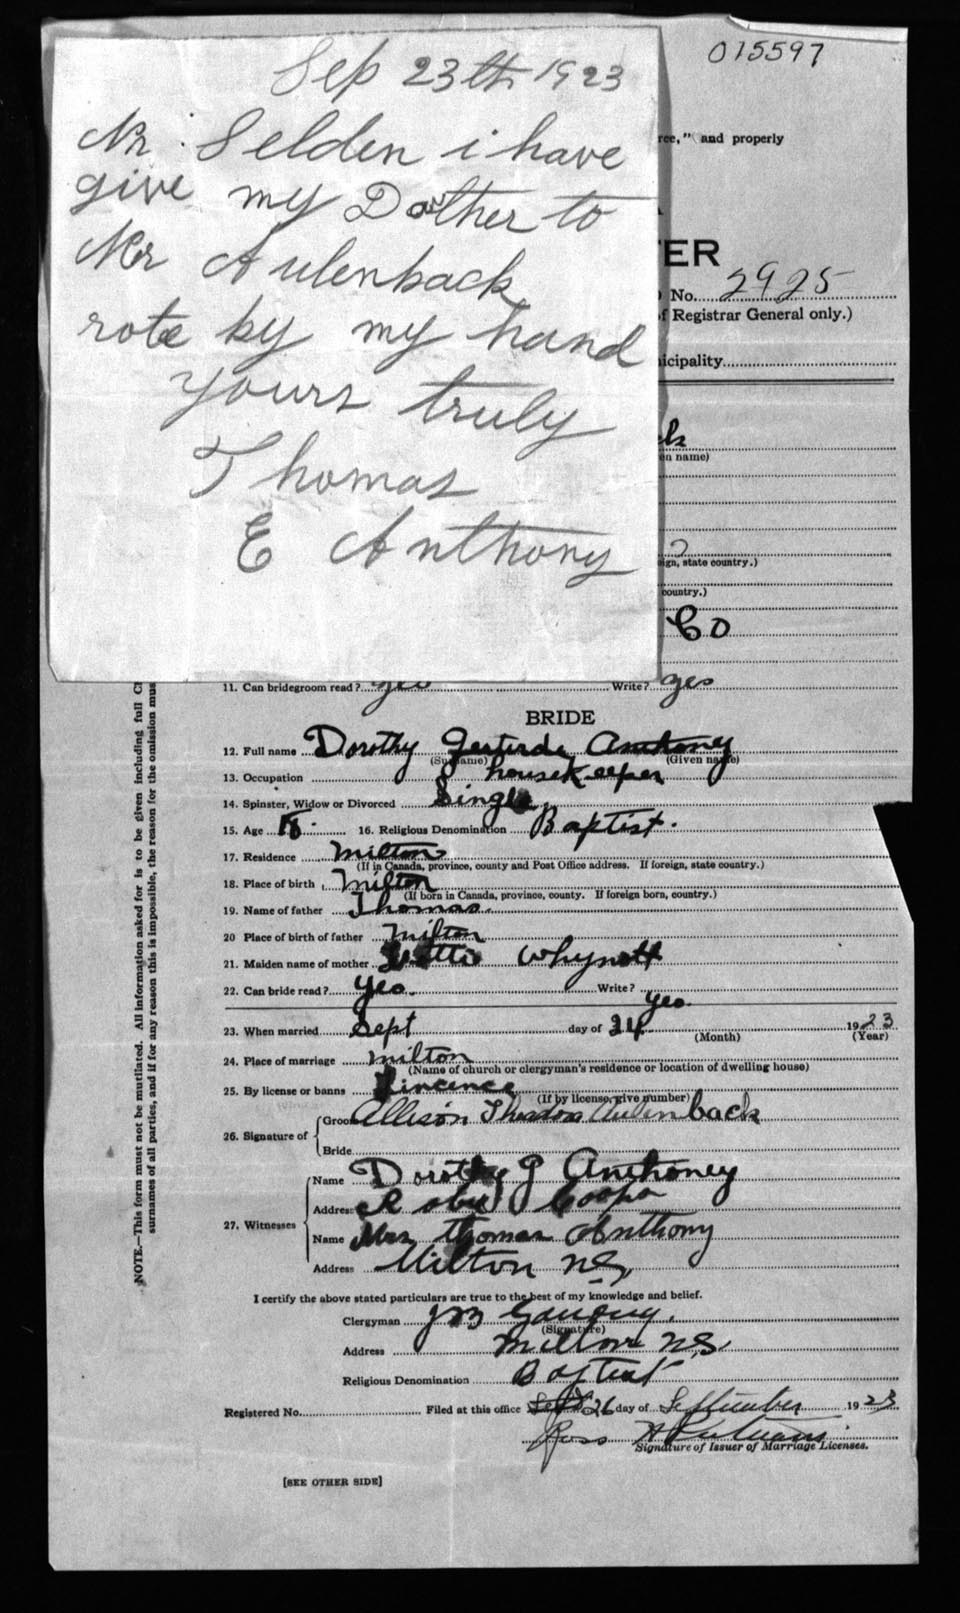 015597
Sep 23th 1923
Mr. Selden i have
give my Dauther to
Mr Aulenback
rote by my hand
yours truly
Thomas
E Anthony
ree," and properly
TER
No. 2925
f Registrar General only.)
icipality
ck
en name)
ign, state country.)
country.)
Co
11. Can bridegroom read? yes Write? yes
BRIDE
12. Full name Dorothy Gertirde Anthoney
(Surname) (Given name)
13. Occupation housekeeper
14. Spinster, Widow or Divorced Single
15. Age 18. 16. Religious Denomination Baptist.
17. Residence Milton
(If in Canada, province, county and Post Office address. If foreign, state country.)
18. Place of birth Milton
(If born in Canada, province, county. If foreign born, country.)
19. Name of father Thomas.
20 Place of birth of father Milton
21. Maiden name of mother Whynott
22. Can bride read? yes. Write? yes.
23. When married Sept day of 24 1923
(Month) (Year)
24. Place of marriage Milton
(Name of church or clergyman's residence or location of dwelling house)
25. By license or banns Lincence
(If by license, give number)
26. Signature of Groom Allison Aulenback
Bride
27. Witnesses
Name Dorothy G Anthoney
Address
Name Mrs Thomas Anthony
Address Milton NS
I certify the above stated particulars are true to the best of my knowledge and belief.
Clergyman J B
(Signature)
Address Milton NS
Religious Denomination Baptist
Registered No. Filed at this office 26 day of September 1923
Ross H
Signature of Issuer of Marriage Licenses.
[SEE OTHER SIDE]
NOTE.—This form must not be mutilated. All information asked for is to be given including full C
surnames of all parties, and if for any reason this is impossible, the reason for the omission mus